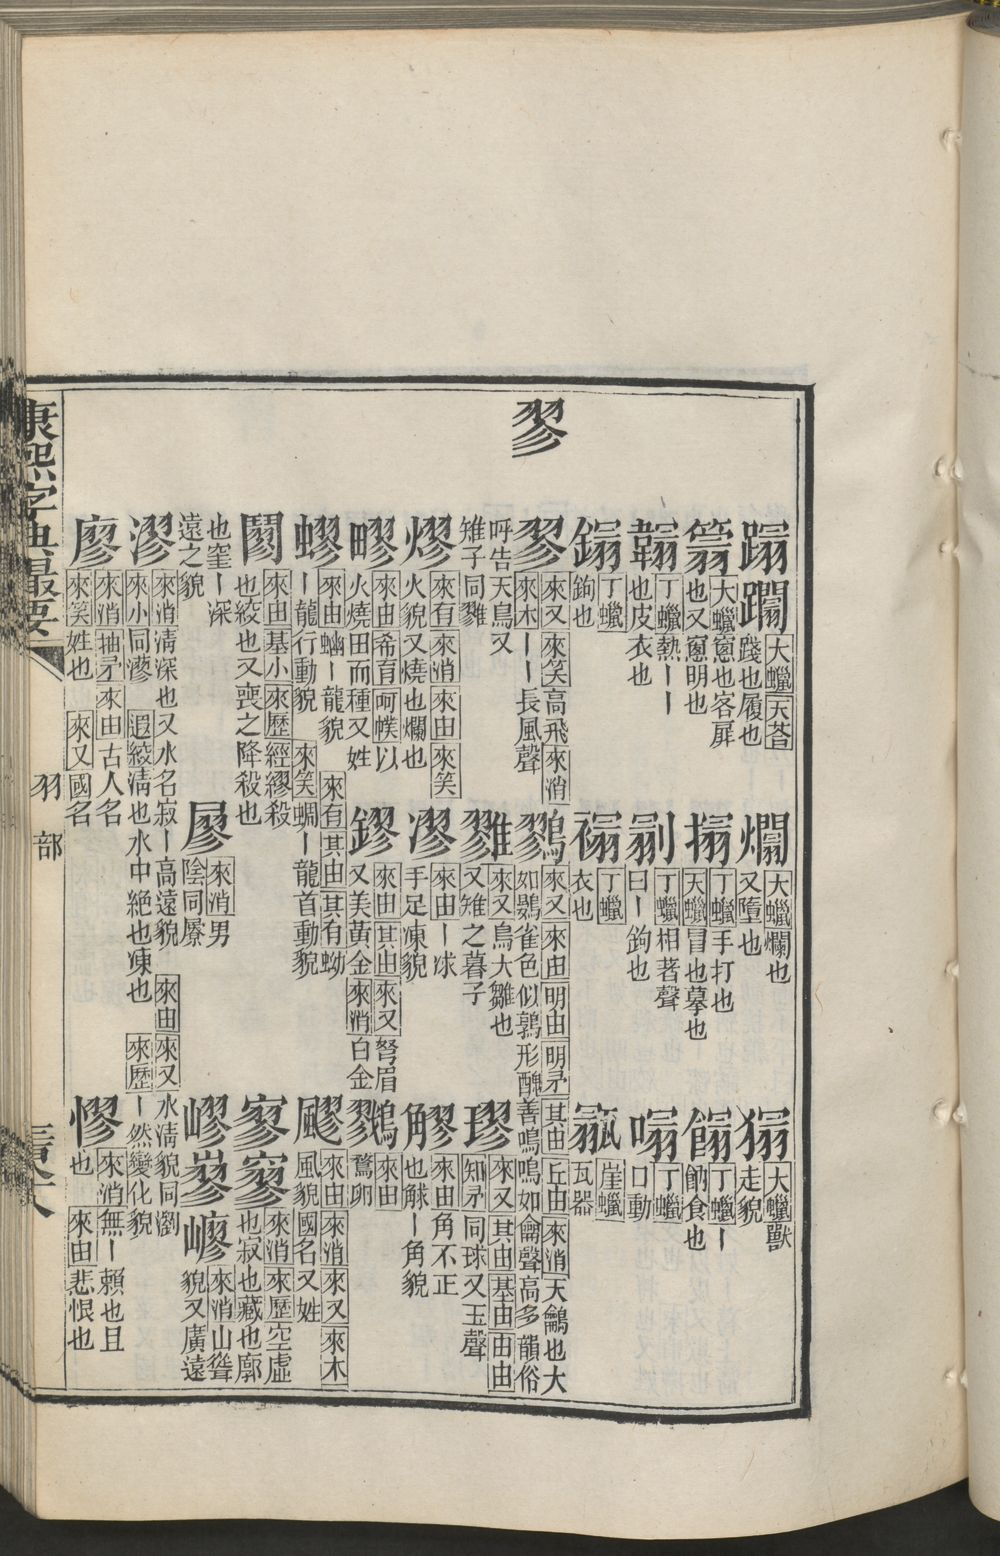 蹋躢 大蠟天荅踐也履也
爛 大蠟爛也又墮也
猲 大蠟獸走貌
大蠟窻也客扉也又窻明也
搨 丁蠟天蠟手打也冒也摹也
丁蠟丨餉食也
丁蠟熱丨丨也皮衣也
丁蠟相著聲曰丨鉤也
嗒 丁蠟口動
鎉 丁蠟鉤也
丁蠟衣也
崖蠟瓦器
翏
翏 來又來笑高飛來消來木丨丨長風聲
鷚 來又來由明由明矛其由丘由來消天鸙也大如鷃雀色似鶉形醜善鳴鳴如龠聲高多韻俗呼告天鳥又雉子同雡
雡 來又鳥大雛也又雉之暮子
璆 來又其由基由由由知矛同球又玉聲
熮 來有來消來由來笑火貌又燒也爛也
漻 來由丨冰手足凍貌
來由角不正也觩丨角貌
疁 來由希育呵幞以火燒田而種又姓
鏐 來由其由來又弩眉又美黃金來消白金
來由鶩卵
蟉 來由蚴丨龍貌丨龍行動貌來笑蜩丨龍首動貌來有其由其有蚴
飂 來由來消來又來木風貌國名又姓
鬮 來由基小來歷經繆殺也絞也又喪之降殺也
寥 來消來歷空虛也寂也藏也廓也窐丨深遠之貌
屪 來消男陰同屪
嵺 來消山聳貌又廣遠
漻 來消清深也又水名寂丨高遠貌來由來又水清貌同瀏來小同㵳遐絞清也水中絶也凍也來歷丨然變化貌
廖 來消抽矛來由古人名來笑姓也來又國名
憀 來消無丨賴也且也來由悲恨也
康熙字典最要
羽部